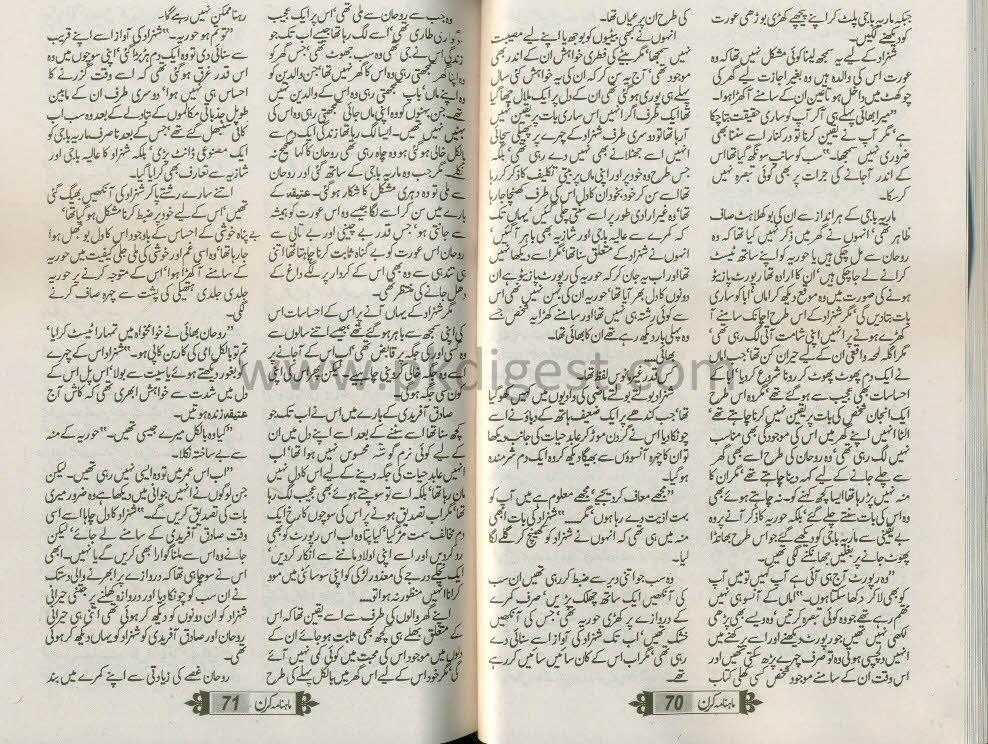 جبکہ ماریہ باجی پلٹ کر اپنے پیچھے کھڑی بوڑھی عورت
کو دیکھنے لگیں۔
شہزاد کے لیے یہ سمجھ لینا کوئی مشکل نہیں تھا کہ وہ
عورت اس کی والدہ ہیں وہ بغیر اجازت لیے گھر کی
چوکھٹ میں داخل ہو تا عین ان کے سامنے آ کھڑا ہوا۔
”میرا بھائی پہلے ہی آ کر آپ کو ساری حقیقت بتا چکا
ہے‘ مگر آپ نے یقین کرنا تو درکنار اسے سننا بھی
ضروری نہیں سمجھا۔“ سب کو سانپ سونگھ گیا تھا اس
کے اندر آ جانے کی جرات پر بھی کوئی تبصرہ نہیں
کر سکا۔
ماریہ باجی کے ہر انداز سے ان کی بوکھلاہٹ صاف
ظاہر تھی‘ انہوں نے گھر میں ذکر نہیں کیا تھا کہ وہ
روحان سے مل چکی ہیں حوریہ کو اپنے ساتھ ٹیسٹ
کرانے لے جا چکی ہیں‘ ان کا ارادہ تھا رپورٹ پازیٹو
ہونے کی صورت میں وہ موقع دیکھ کر اماں‘ ابا کو ساری
بات بتا دیں گی‘ مگر شہزاد کے اس طرح اچانک سامنے آ
کھڑے ہونے پر انہیں اپنی شامت آتی لگ رہی تھی‘
مگر اگلا لمحہ واقعی ان کے لیے حیران کن تھا‘ جب اماں
نے ایک دم پھوٹ پھوٹ کر رونا شروع کر دیا‘ ابا کے
احساسات بھی عجیب سے ہو گئے تھے‘ مگر وہ اس طرح
ایک انجان شخص کی بات پر یقین نہیں کرنا چاہتے تھے‘
الٹا انہیں اپنے گھر میں اس کی موجودگی بھی مناسب
نہیں لگ رہی تھی‘ وہ روحان کی طرح اسے بھی گھر
سے چلے جانے کے لیے کہہ دینا چاہتے تھے‘ مگر ان کا
منہ نہیں پڑ رہا تھا ایسا کچھ کہنے کو۔ نہ چاہتے ہوئے بھی
وہ اس کی بات سنتے چلے گئے‘ بلکہ حوریہ کا ذکر آنے پر وہ
بے یقینی سے ماریہ باجی کو دیکھنے لگے جو اس طرح بھانڈا
پھوٹ جانے پر بغلیں جھانکنے لگی تھیں۔
”وہ رپورٹ آج ہی آئی ہے آپ کہیں تو میں آپ
کو بھی لا کر دکھا سکتا ہوں۔“ اماں کے آنسو ہی نہیں
تھم رہے تھے جو وہ کوئی تبصرہ کرتیں وہ ویسے بھی پڑھی
لکھی نہیں تھیں جو رپورٹ دیکھنے اور اسے پرکھنے میں
انہیں دلچسپی ہوتی وہ تو صرف چہرے پڑھ سکتی تھیں اور
اس وقت ان کے سامنے موجود شخص کسی کھلی کتاب
کی طرح ان پر عیاں تھا۔
انہوں نے بھی بیٹیوں کو بوجھ یا اپنے لیے مصیبت
نہیں سمجھا‘ مگر بیٹے کی فطری خواہش ان کے اندر بھی
موجود تھی‘ آج یہ سن کر کہ ان کی یہ خواہش کئی سال
پہلے ہی پوری ہو گئی تھی ان کے دل پر ایک ملال چھا گیا
تھا ایک طرف اگر انہیں اس ساری بات پر یقین نہیں
آ رہا تھا تو دوسری طرف شہزاد کے چہرے پر پھیلی سچائی
انہیں اسے جھٹلانے بھی نہیں دے رہی تھی‘ بلکہ
جس طرح وہ خود پر اور اپنی ماں پر بیتی تکالیف کا ذکر کر رہا
تھا اسے سن کر خود بخود ان کا دل اس کی طرف کھنچا جا رہا
تھا‘ وہ غیر ارادی طور پر اسے سنتی چلی گئیں‘ یہاں تک
کہ کمرے سے عالیہ باجی اور شازیہ بھی باہر آ گئیں‘
انہوں نے شہزاد کے متعلق سنا تھا‘ مگر اسے دیکھا نہیں
تھا اور اب یہ جان کر کہ حوریہ کی رپورٹ پازیٹو ہے ان
دونوں کا دل بھر آیا تھا‘ حوریہ ان کی بہن نہیں تھی‘ اس
سے کوئی رشتہ ہی نہیں تھا‘ اور سامنے کھڑا یہ شخص جسے
وہ پہلی بار دیکھ رہے تھے ان کا بھائی تھا۔
بھائی...
کس قدر غیر مانوس لفظ تھا۔
شہزاد بولتے بولتے ماضی کی وادیوں میں کہیں کھو گیا
تھا‘ جب کندھے پر ایک ضعیف ہاتھ کے دباؤ نے اسے
چونکا دیا اس نے گردن موڑ کر عابد حیات کی جانب دیکھا
تو ان کا چہرہ آنسوؤں سے بھیگا دیکھ کر وہ ایک دم شرمندہ
ہو گیا۔
”مجھے معاف کر دیجیے‘ مجھے معلوم ہے میں آپ کو
بہت اذیت دے رہا ہوں‘ مگر......“ شہزاد کی بات ابھی
منہ میں ہی تھی کہ انہوں نے شہزاد کو کھینچ کر گلے لگا
لیا۔
وہ سب جو اتنی دیر سے ضبط کر رہی تھیں ان سب
کی آنکھیں ایک ساتھ چھلک پڑیں‘ صرف کمرے
کے دروازے پر کھڑی حوریہ تھی‘ جس کی آنکھیں
خشک تھیں‘ اب تک شہزاد کی آواز اسے سنائی دے
رہی تھی‘ مگر اب اس کے کان سائیں سائیں کر رہے
تھے
ماہنامہ کرن 70
وہ جب سے روحان سے ملی تھی‘ اس پر ایک عجیب
طاری تھا‘ اسے لگ رہا تھا جیسے اب تک جو
زندگی اس نے جی تھی وہ سب جھوٹ تھی‘ جس گھر کو
وہ اپنا گھر سمجھتی رہی وہ اس کا گھر نہیں تھا جن والدین کو
وہ اپنے ماں‘ باپ سمجھتی رہی وہ اس کے والدین نہیں
تھے‘ جن بہنوں کو وہ اپنی جائی جان سمجھتی رہی وہ اس کی
بہنیں نہیں تھیں۔ ایسا لگ رہا تھا زندگی ایک دم سے
بالکل خالی ہو گئی ہو وہ چاہ رہی تھی روحان کا کہا صحیح نہ
نکلے‘ مگر جب وہ ماریہ باجی کے ساتھ گئی اور روحان
سے ملی تو وہ دہری مشکل کا شکار ہو گئی۔ عنیقہ کے
بارے میں سن کر اسے لگا جیسے وہ اس عورت کو ہمیشہ
سے جانتی ہو‘ جس قدر بے چینی اور بے تابی سے
روحان اس عورت کو بے گناہ ثابت کرنا چاہتا تھا اتنی
ہی تندہی سے وہ بھی اس کے کردار پر لگے داغ کے
دھل جانے کی منتظر تھی۔
مگر شہزاد کے یہاں آنے پر اس کے احساسات اس
کی اپنی سمجھ سے باہر ہو گئے تھے‘ جیسے اتنے سالوں سے
وہ کسی اور کی جگہ پر قابض تھی‘ اب اس کے آ جانے پر
اسے وہ جگہ خالی کر دینی چاہیے‘ لیکن پھر اس کی اپنی
کون سی جگہ ہو گی۔
صادق آفریدی کے بارے میں اس نے اب تک جو
کچھ سنا تھا اسے سننے کے بعد اسے اپنے دل میں ان
کے لیے کوئی نرم گوشہ محسوس نہیں ہوا تھا‘ اب
انہیں عابد حیات کی جگہ دینے کے لیے اس کا دل نہیں
مان رہا تھا‘ بلکہ اسے تو سوچتے ہوئے بھی عجیب لگ رہا
تھا‘ مگر اب تصدیق ہونے پر اس کی سوچوں کا رخ ایک
دم مخالف سمت مڑ گیا‘ کیا پتا وہ اب اس رپورٹ کو بھی
رد کر دیں اور اسے اپنی اولاد ماننے سے انکار کر دیں‘
ایک نچلے درجے کی معذور لڑکی کو اپنی سوسائٹی میں موو
کرانا انہیں منظور نہ ہو تو...
اپنے گھر والوں کی طرف سے اسے یقین تھا کہ اس
کے متعلق بھلے ہی کچھ بھی ثابت ہو جائے ان کے
دلوں میں موجود اس کی محبت میں کوئی کمی نہیں آئے
گی‘ مگر خود اس کے لیے اس گھر میں بالکل پہلے کی طرح
رہنا ممکن نہیں رہے گا۔
”تو تم ہو حوریہ۔“ شہزاد کی آواز اسے اپنے قریب
سے سنائی دی تو وہ ایک دم ہڑبڑا گئی‘ اپنی سوچوں میں وہ
اس قدر غرق ہو گئی تھی کہ اسے وقت گزرنے کا
احساس ہی نہیں ہوا‘ دوسری طرف ان کے مابین
طویل جذباتی مکالموں کے تبادلے کے بعد وہ سب اب
کافی سنبھل گئے تھے‘ جس کے بعد نا صرف ماریہ باجی کو
ایک مصنوعی ڈانٹ پڑی‘ بلکہ شہزاد کا عالیہ باجی اور
شازیہ سے تعارف بھی کرایا گیا۔
اتنے سارے رشتے پا کر شہزاد کی آنکھیں بھیگ گئی
تھیں‘ اس کے لیے خود پر ضبط کرنا مشکل ہو گیا تھا‘
بے پناہ خوشی کے احساس کے باوجود اس کا دل بوجھل ہوا
جا رہا تھا‘ وہ اسی غم اور خوشی کی ملی جلی کیفیت میں حوریہ
کے سامنے آ کھڑا ہوا‘ اس کے متوجہ کرنے پر حوریہ
جلدی جلدی ہتھیلی کی پشت سے چہرہ صاف کرنے
لگی۔
”روحان بھائی نے خوامخواہ میں تمہارا ٹیسٹ کرایا‘
تم تو بالکل امی کی کاربن کاپی ہو۔“ شہزاد اس کے چہرے
کو بغور دیکھتے ہوئے یاسیت سے بولا‘ اس پل اس کے
دل میں شدت سے خواہش ابھری تھی کہ کاش آج
عنیقہ زندہ ہوتیں۔
”کیا وہ بالکل میرے جیسی تھیں۔“ حوریہ کے منہ
سے بے ساختہ نکلا۔
”اب اس عمر میں تو وہ ایسی نہیں رہی تھیں۔ لیکن
جن لوگوں نے انہیں جوانی میں دیکھا ہے وہ ضرور میری
بات کی تصدیق کریں گے۔“ شہزاد کا دل چاہا اسے اسی
وقت صادق آفریدی کے سامنے لے جائے‘ لیکن
جانے وہ اس سے ملنا گوارا بھی کریں گے یا نہیں۔ ابھی
اس نے سوچا ہی تھا کہ دروازے پر ابھرنے والی دستک
نے ان سب کو چونکا دیا اور دروازہ کھلنے پر جتنی حیرانی
شہزاد کو ان دونوں کو دیکھ کر ہوئی تھی‘ اتنی ہی حیرانی
روحان اور صادق آفریدی کو شہزاد کو یہاں دیکھ کر ہوئی
تھی۔
روحان غصے کی زیادتی سے اپنے کمرے میں بند
ماہنامہ کرن 71
www.pkdigest.com